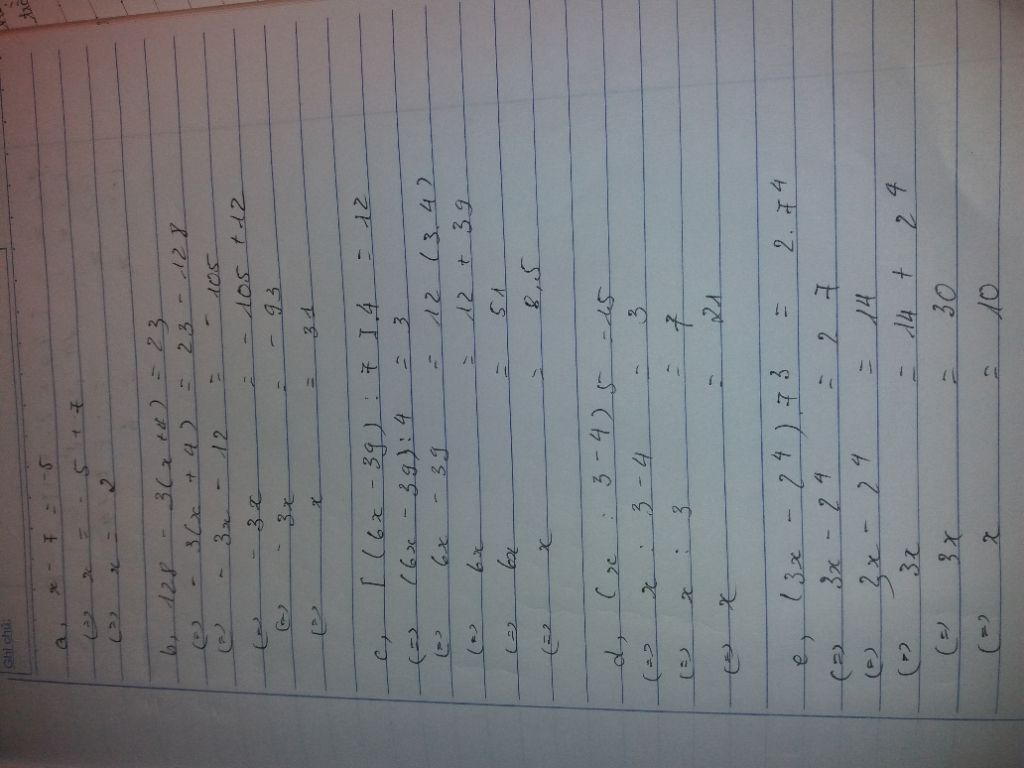 Ghi chú:
a, x - 7 = -5
(=) x = -5 + 7
(=) x = 2
b, 128 - 3(x+4) = 23
(=) - 3(x + 4) = 23 - 128
(=) - 3x - 12 = - 105
(=) - 3x = - 105 + 12
(=) - 3x = - 93
(=) x = 31
c, [(6x - 39) : 7].4 = 12
(=) (6x - 39) : 4 = 3
(=) 6x - 39 = 12 (3.4)
(=) 6x = 12 + 39
(=) 6x = 51
(=) x = 8,5
d, (x : 3 - 4).5 = 15
(=) x : 3 - 4 = 3
(=) x : 3 = 7
(=) x = 21
e, (3x - 2⁴).7³ = 2.7⁴
(=) 3x - 2⁴ = 2 7
(=) 3x - 2⁴ = 14
(=) 3x = 14 + 2⁴
(=) 3x = 30
(=) x = 10